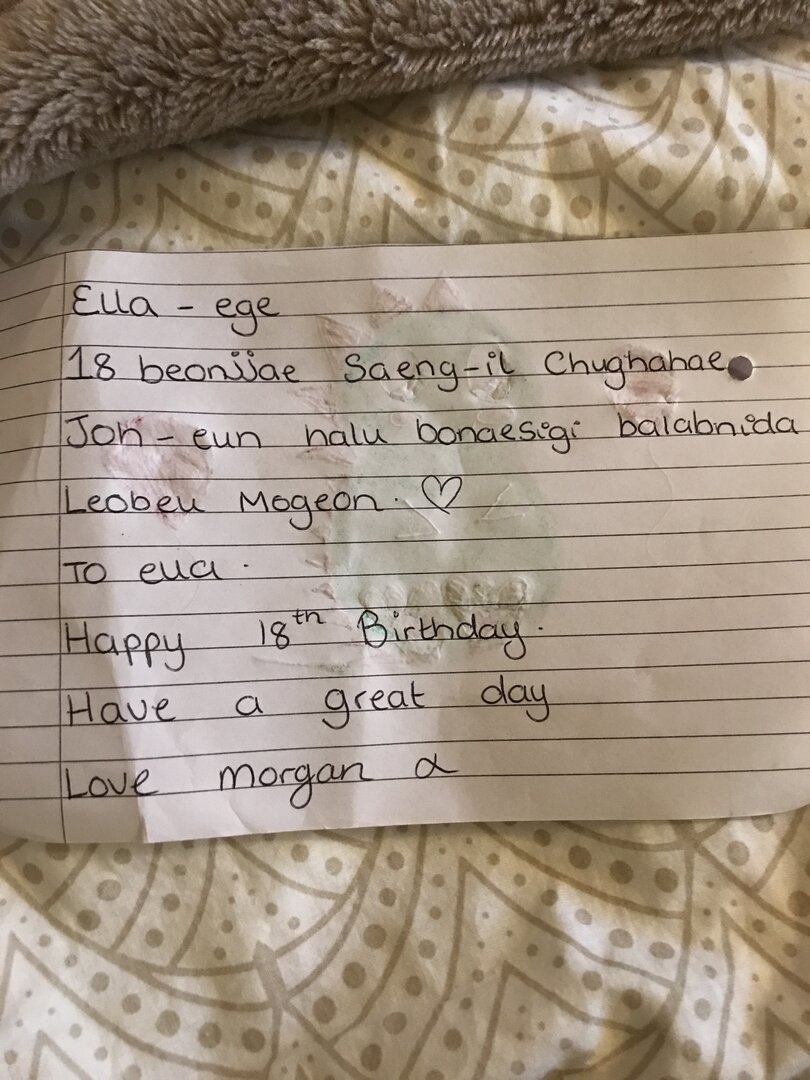 Ella - ege
18 beonjjae Saeng-il Chughahae.
Joh-eun halu bonaesigi balabnida
Leobeu Mogeon. ♡
To ella.
Happy 18th Birthday.
Have a great day
Love morgan x